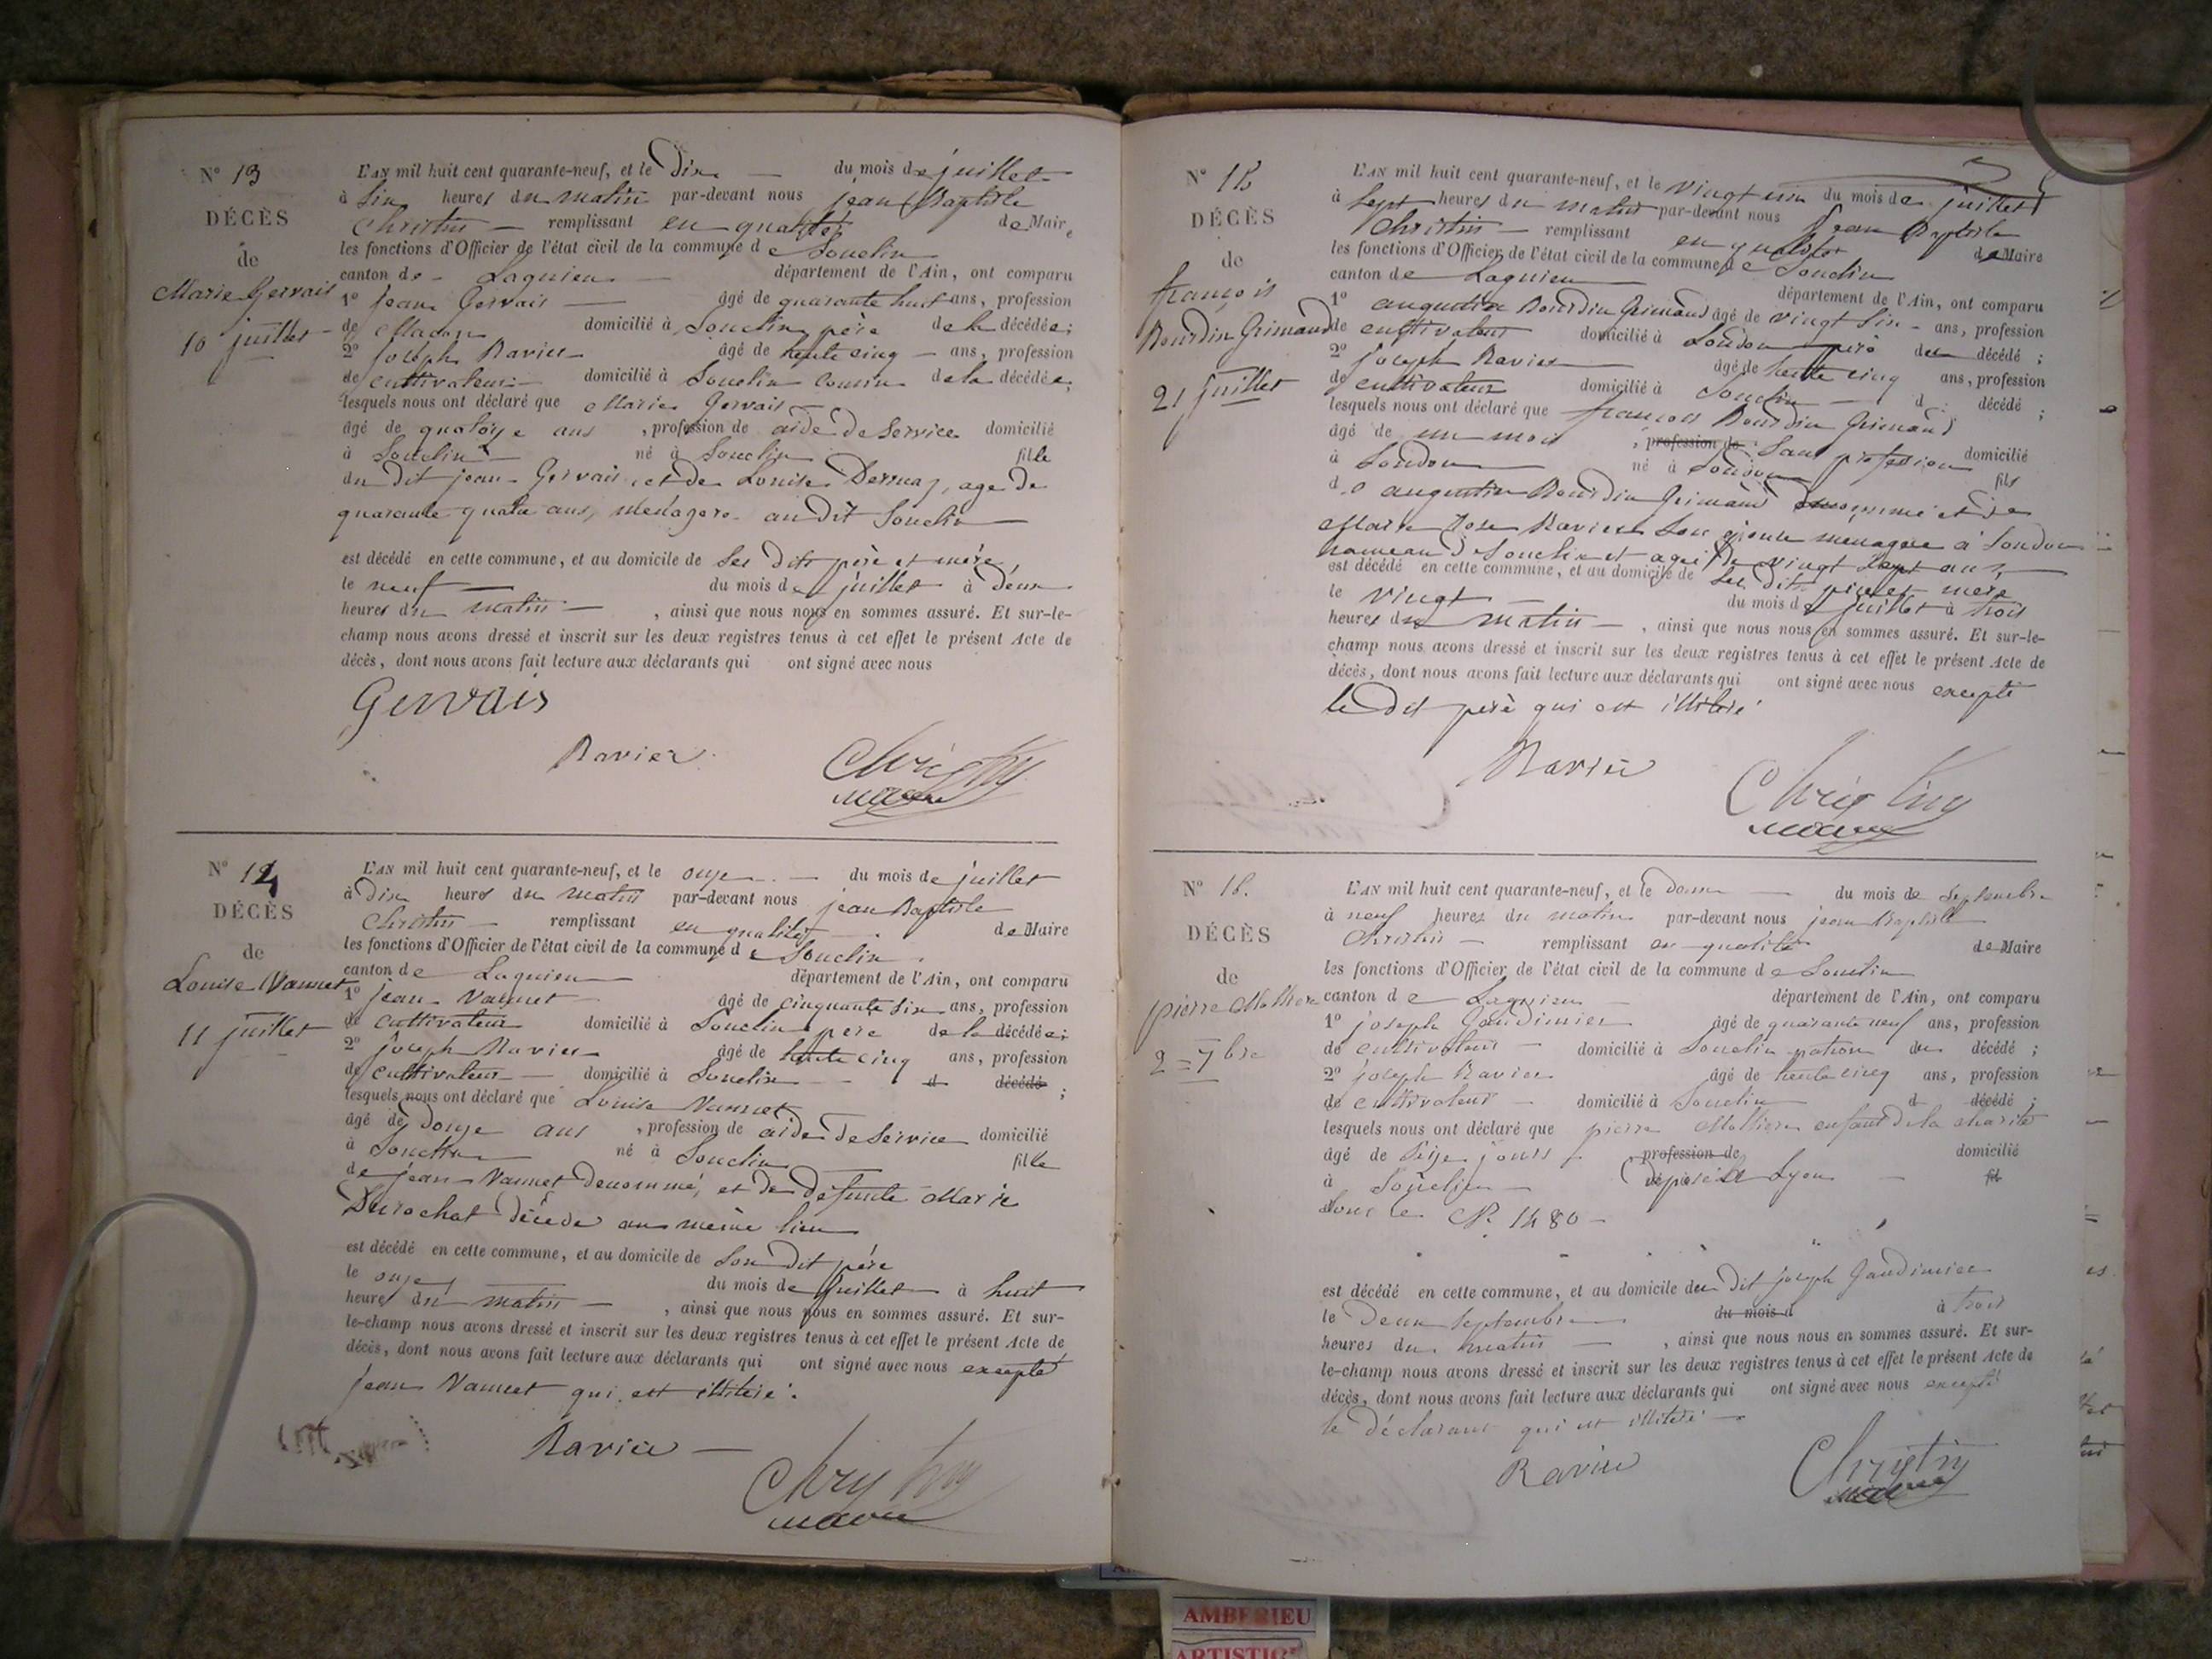 N° 13
DÉCÈS
de
Marie Gervais
10 juillet
L'AN mil huit cent quarante-neuf, et le Dix du mois de juillet
à Six heures du matin par-devant nous jean Baptiste
Christin remplissant en qualité de Maire
les fonctions d'Officier de l'état civil de la commune de Souclin
canton de Lagnieu département de l'Ain, ont comparu
1° jean Gervais âgé de quarante huit ans, profession
de Maçon domicilié à Souclin père de la décédée;
2° joseph Ravier âgé de trente cinq ans, profession
de cultivateur domicilié à Souclin cousin de la décédée;
lesquels nous ont déclaré que Marie Gervais
âgé de quatorze ans, profession de aide de Service domicilié
à Souclin né à Souclin fille
du dit jean Gervais et de Louise Dernaz, age de
quarante quatre ans, ménagere au dit Souclin
est décédé en cette commune, et au domicile de Ses dits père et mère
le neuf du mois de juillet à deux
heures du matin, ainsi que nous nous en sommes assuré. Et sur-le-
champ nous avons dressé et inscrit sur les deux registres tenus à cet effet le présent Acte de
décès, dont nous avons fait lecture aux déclarants qui ont signé avec nous
Gervais
Ravier Christin
maire
N° 14
DÉCÈS
de
Louise Vannet
11 juillet
L'AN mil huit cent quarante-neuf, et le onze du mois de juillet
à Dix heures du matin par-devant nous jean Baptiste
Christin remplissant en qualité de Maire
les fonctions d'Officier de l'état civil de la commune de Souclin
canton de Lagnieu département de l'Ain, ont comparu
1° jean Vannet âgé de cinquante Six ans, profession
de cultivateur domicilié à Souclin père de la décédée;
2° joseph Ravier âgé de trente cinq ans, profession
de cultivateur domicilié à Souclin d décédé;
lesquels nous ont déclaré que Louise Vannet
âgé de Douze ans, profession de aide de Service domicilié
à Souclin né à Souclin fille
de jean Vannet denommé, et de defunte Marie
Durochat décédé au même lieu
est décédé en cette commune, et au domicile de Son dit père
le onze du mois de juillet à huit
heures du matin, ainsi que nous nous en sommes assuré. Et sur-
le-champ nous avons dressé et inscrit sur les deux registres tenus à cet effet le présent Acte de
décès, dont nous avons fait lecture aux déclarants qui ont signé avec nous excepté
jean Vannet qui est illitéré.
Ravier Christin
maire
N° 15
DÉCÈS
de
françois
Bourdin Grimaud
21 juillet
L'AN mil huit cent quarante-neuf, et le vingt un du mois de juillet
à Sept heures du matin par-devant nous Jean Baptiste
Christin remplissant en qualité de Maire
les fonctions d'Officier de l'état civil de la commune de Souclin
canton de Lagnieu département de l'Ain, ont comparu
1° augustin Bourdin Grimaud âgé de vingt Six ans, profession
de cultivateur domicilié à Soudon père du décédé;
2° joseph Ravier âgé de trente cinq ans, profession
de cultivateur domicilié à Souclin d décédé;
lesquels nous ont déclaré que françois Bourdin Grimaud
âgé de un mois, profession de Sans profession domicilié
à Soudon né à Soudon fils
de augustin Bourdin Grimaud denommé et de
Marie Rose Ravier Son épouse menagere à Soudon
hameau de Souclin et agée de vingt Sept ans
est décédé en cette commune, et au domicile de Ses dits père et mere
le vingt du mois de juillet à trois
heures du matin, ainsi que nous nous en sommes assuré. Et sur-le-
champ nous avons dressé et inscrit sur les deux registres tenus à cet effet le présent Acte de
décès, dont nous avons fait lecture aux déclarants qui ont signé avec nous excepté
le dit père qui est illitéré
Ravier Christin
maire
N° 16.
DÉCÈS
de
pierre Mathieu
2 = 7bre
L'AN mil huit cent quarante-neuf, et le Deux du mois de Septembre
à neuf heures du matin par-devant nous jean Baptiste
Christin remplissant en qualité de Maire
les fonctions d'Officier de l'état civil de la commune de Souclin
canton de Lagnieu département de l'Ain, ont comparu
1° joseph Gaudimier âgé de quarante neuf ans, profession
de cultivateur domicilié à Souclin du décédé;
2° joseph Ravier âgé de trente cinq ans, profession
de cultivateur domicilié à Souclin d décédé;
lesquels nous ont déclaré que pierre enfant de la charité
âgé de Seize jours profession de domicilié
à Souclin déposé à Lyon fil
sous le N° 1480
est décédé en cette commune, et au domicile du Dit joseph Gaudimier
le Deux Septembre du mois d à trois
heures du matin, ainsi que nous nous en sommes assuré. Et sur-
le-champ nous avons dressé et inscrit sur les deux registres tenus à cet effet le présent Acte de
décès, dont nous avons fait lecture aux déclarants qui ont signé avec nous excepté
le déclarant qui est illitéré
Ravier Christin
maire
AMBERIEU
ARTISTIC